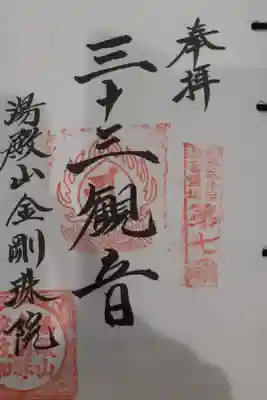 奉拝
第七番
三十三観音
湯殿山金剛珠院